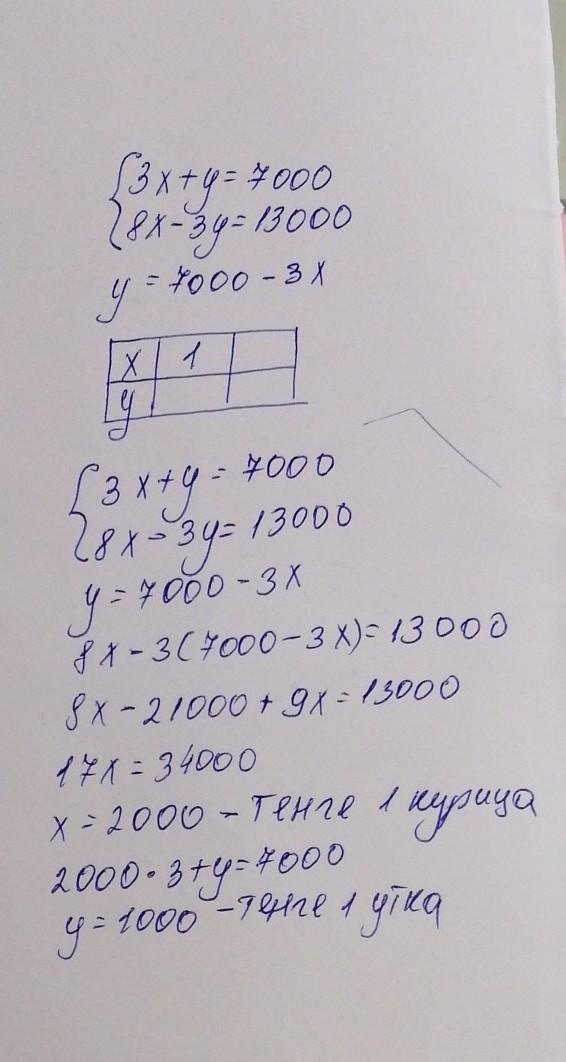 3x+y=7000
8x-3y=13000
y=7000-3x
x 1
y
3x+y=7000
8x-3y=13000
y=7000-3x
8x-3(7000-3x)=13000
8x-21000+9x=13000
17x=34000
x=2000-тенге 1 курица
2000·3+y=7000
y=1000-тенге 1 утка